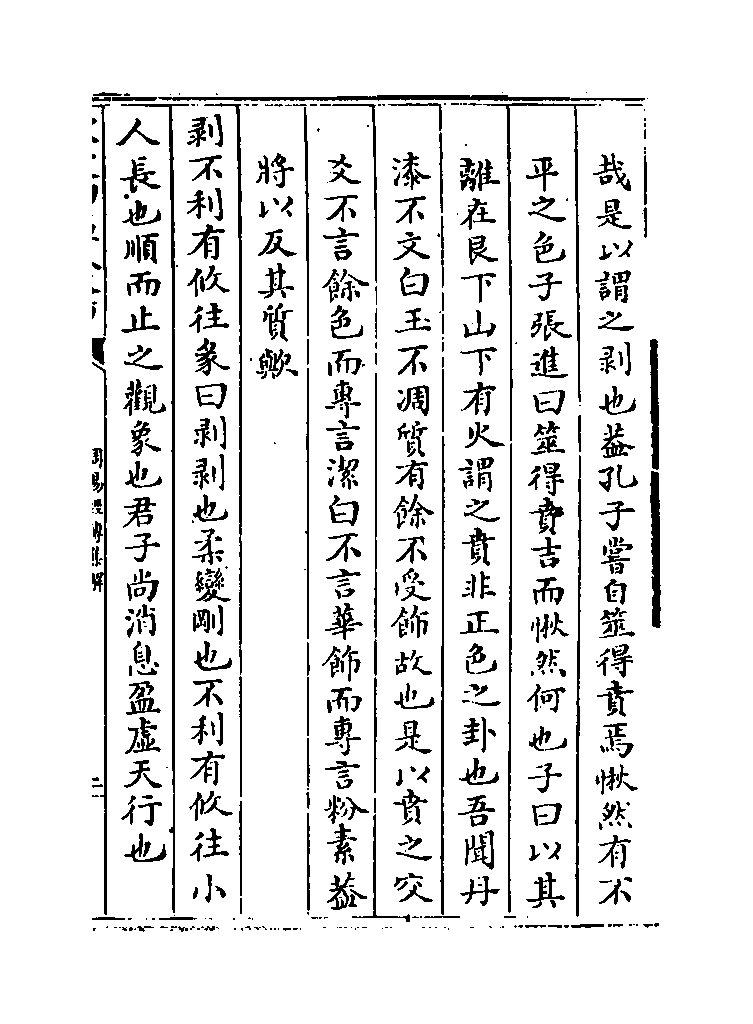 哉是以謂之剥也葢孔子嘗自筮得賁焉愀然有不
平之色子張進曰筮得賁吉而愀然何也子曰以其
離在艮下山下有火謂之賁非正色之卦也吾聞丹
漆不文白玉不凋質有餘不受飾故也是以賁之六
爻不言餘色而專言潔白不言華飾而專言粉素葢
將以反其質歟
剥不利有攸往彖曰剥剥也柔變剛也不利有攸往小
人長也順而止之觀象也君子尚消息盈虛天行也
周易經傳集解
二